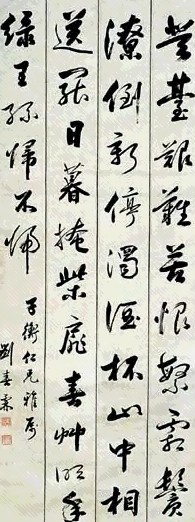 登臺艱難苦恨繁霜鬢
潦倒新停濁酒杯山中相
送罷日暮掩柴扉春艸明年
綠王孫歸不歸
子衡仁兄雅屬
劉春霖